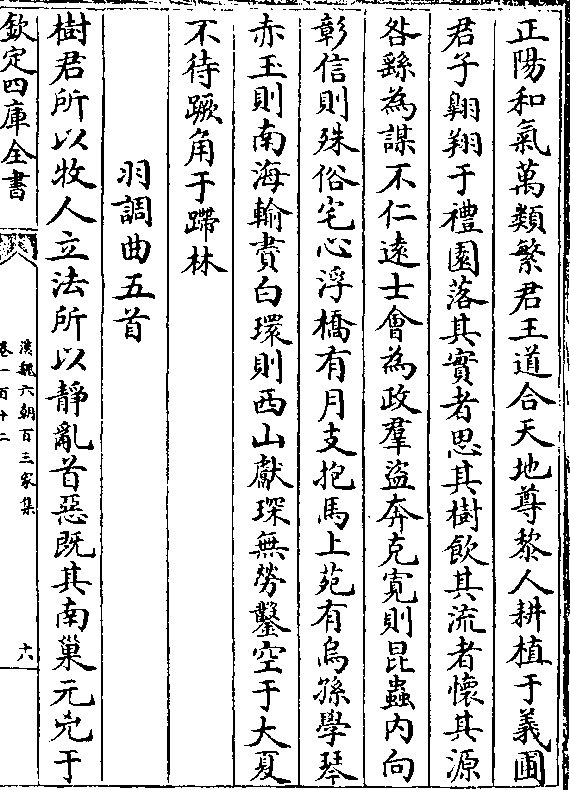 正陽和氣萬類繁君王道合天地尊黎人耕植于義圃
君子翺翔于禮園落其實者思其樹飲其流者懷其源
咎繇為謀不仁遠士會為政羣盜奔克寛則昆蟲内向
彰信則殊俗宅心浮橋有月支抱馬上苑有烏孫學琴
赤玉則南海輸賮白環則西山獻琛無勞鑿空于大夏
不待蹶角于蹛林
羽調曲五首
樹君所以牧人立法所以靜亂首惡既其南巢元兇于
欽定四庫全書
漢魏六朝百三家集
卷一百十二
十六